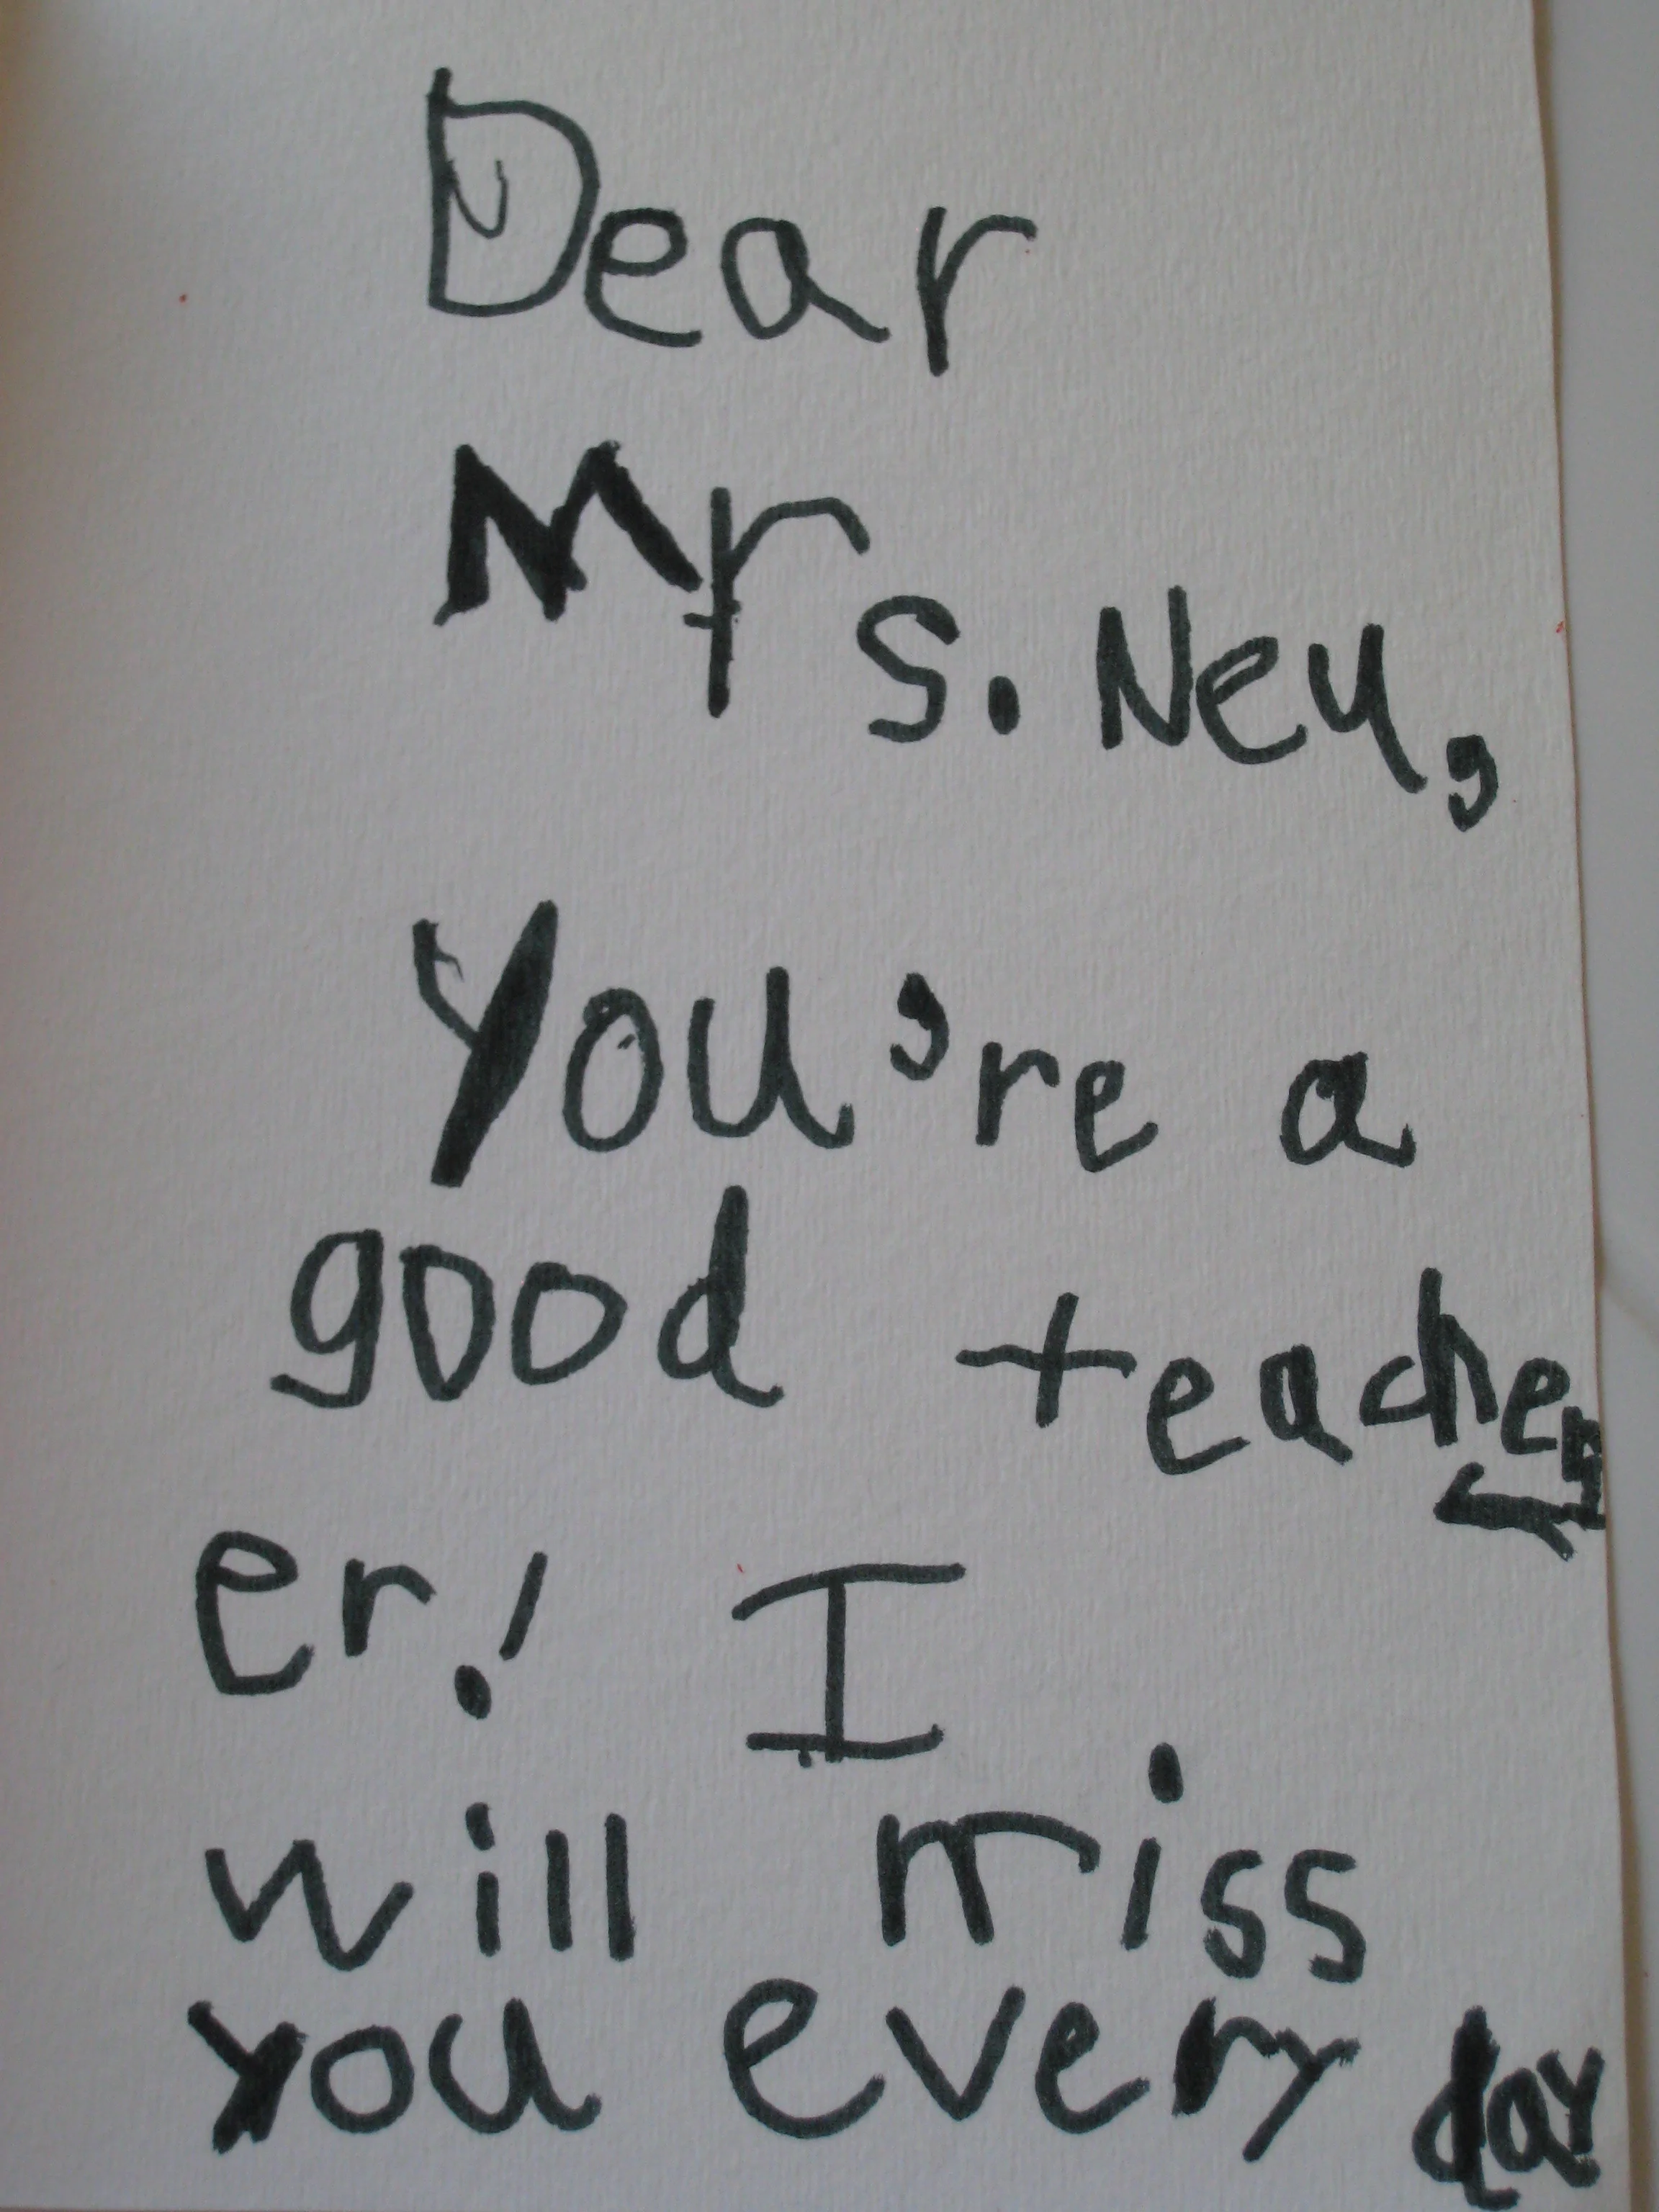 Dear
Mrs. Neu,
You're a
good teacher
er! I
will miss
you every day